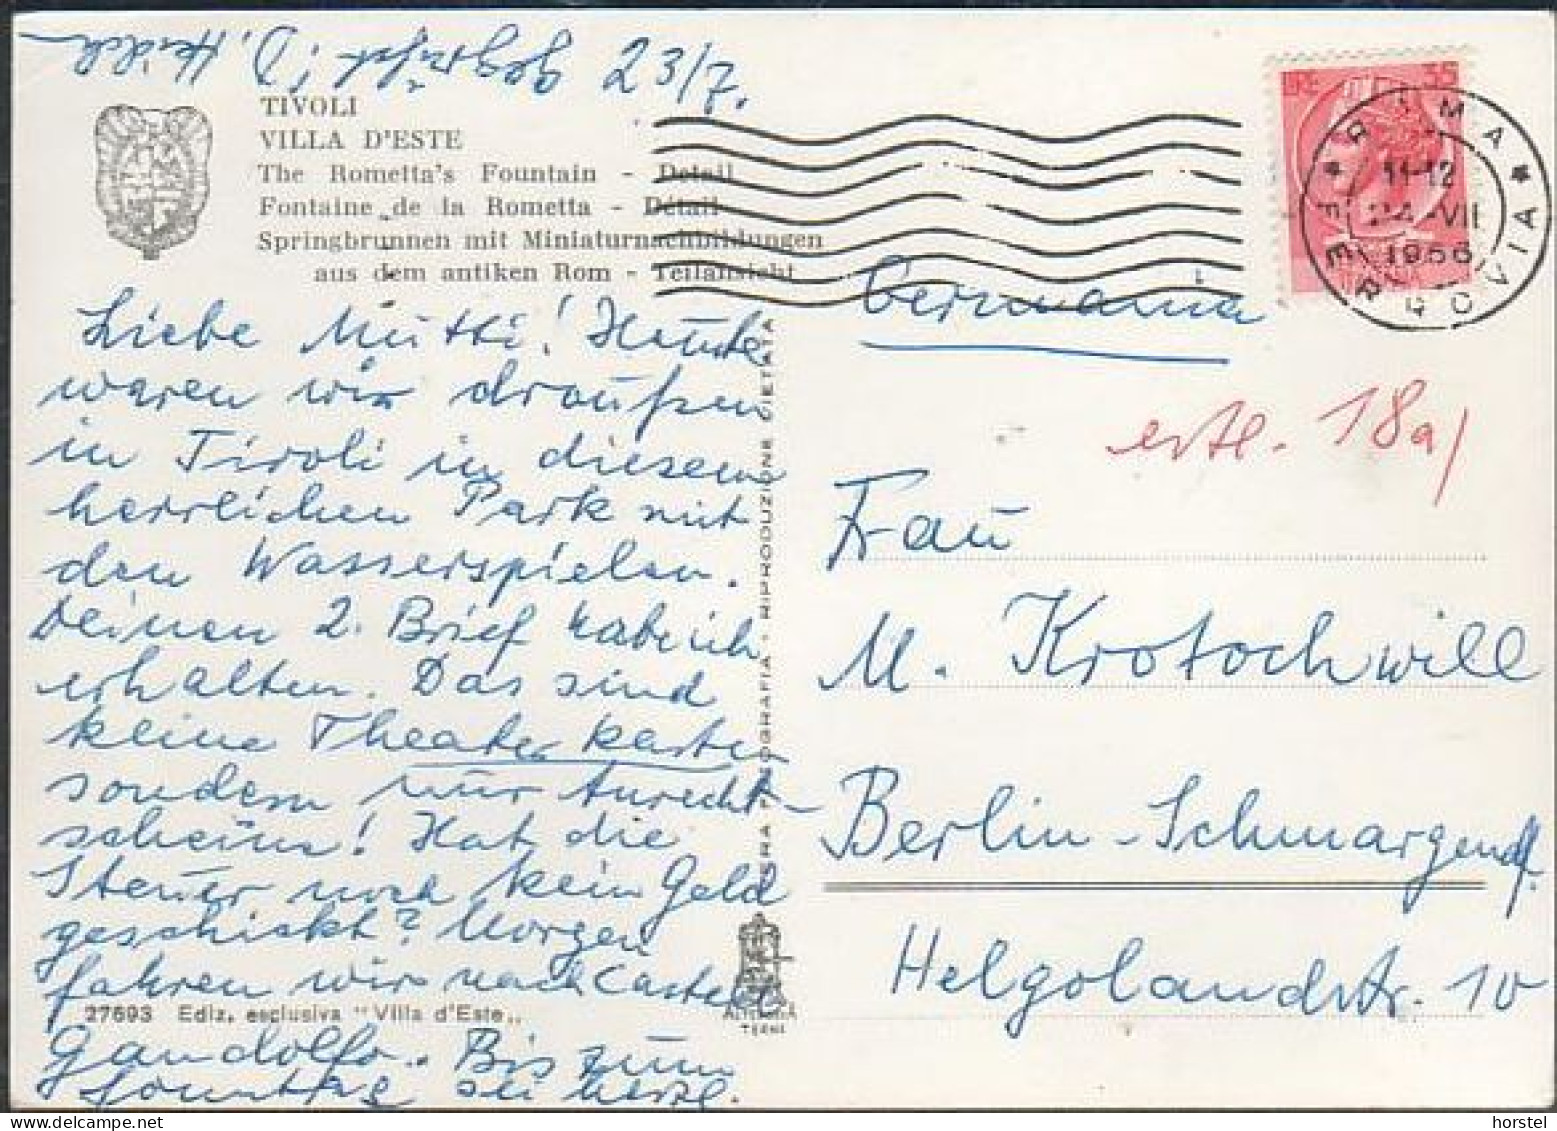 23/7. gegrüßt
TIVOLI
VILLA D'ESTE
The Rometta's Fountain - Detail
Fontaine de la Rometta - Détail
Springbrunnen mit Miniaturnachbildungen
aus dem antiken Rom - Teilansicht
Liebe Mutti! Heute
waren wir draußen
in Tivoli in diesem
herrlichen Park mit
den Wasserspielen.
Deinen 2. Brief habe ich
erhalten. Das sind
keine Theaterkarten
sondern nur Anrecht-
scheine! Hat die
Steuer noch kein Geld
geschickt? Morgen
fahren wir nach Castell
Gandolfo. Bis zum
Sonntag sei herzl.
27693 Ediz. esclusiva "Villa d'Este"
RIPRODUZIONE VIETATA
TERNI
35
ROMA
FERROVIA
11-12
24 VII
1956
Germania
ertl. 18a/
Frau
M. Krotochwill
Berlin-Schmargendf.
Helgolandstr. 10